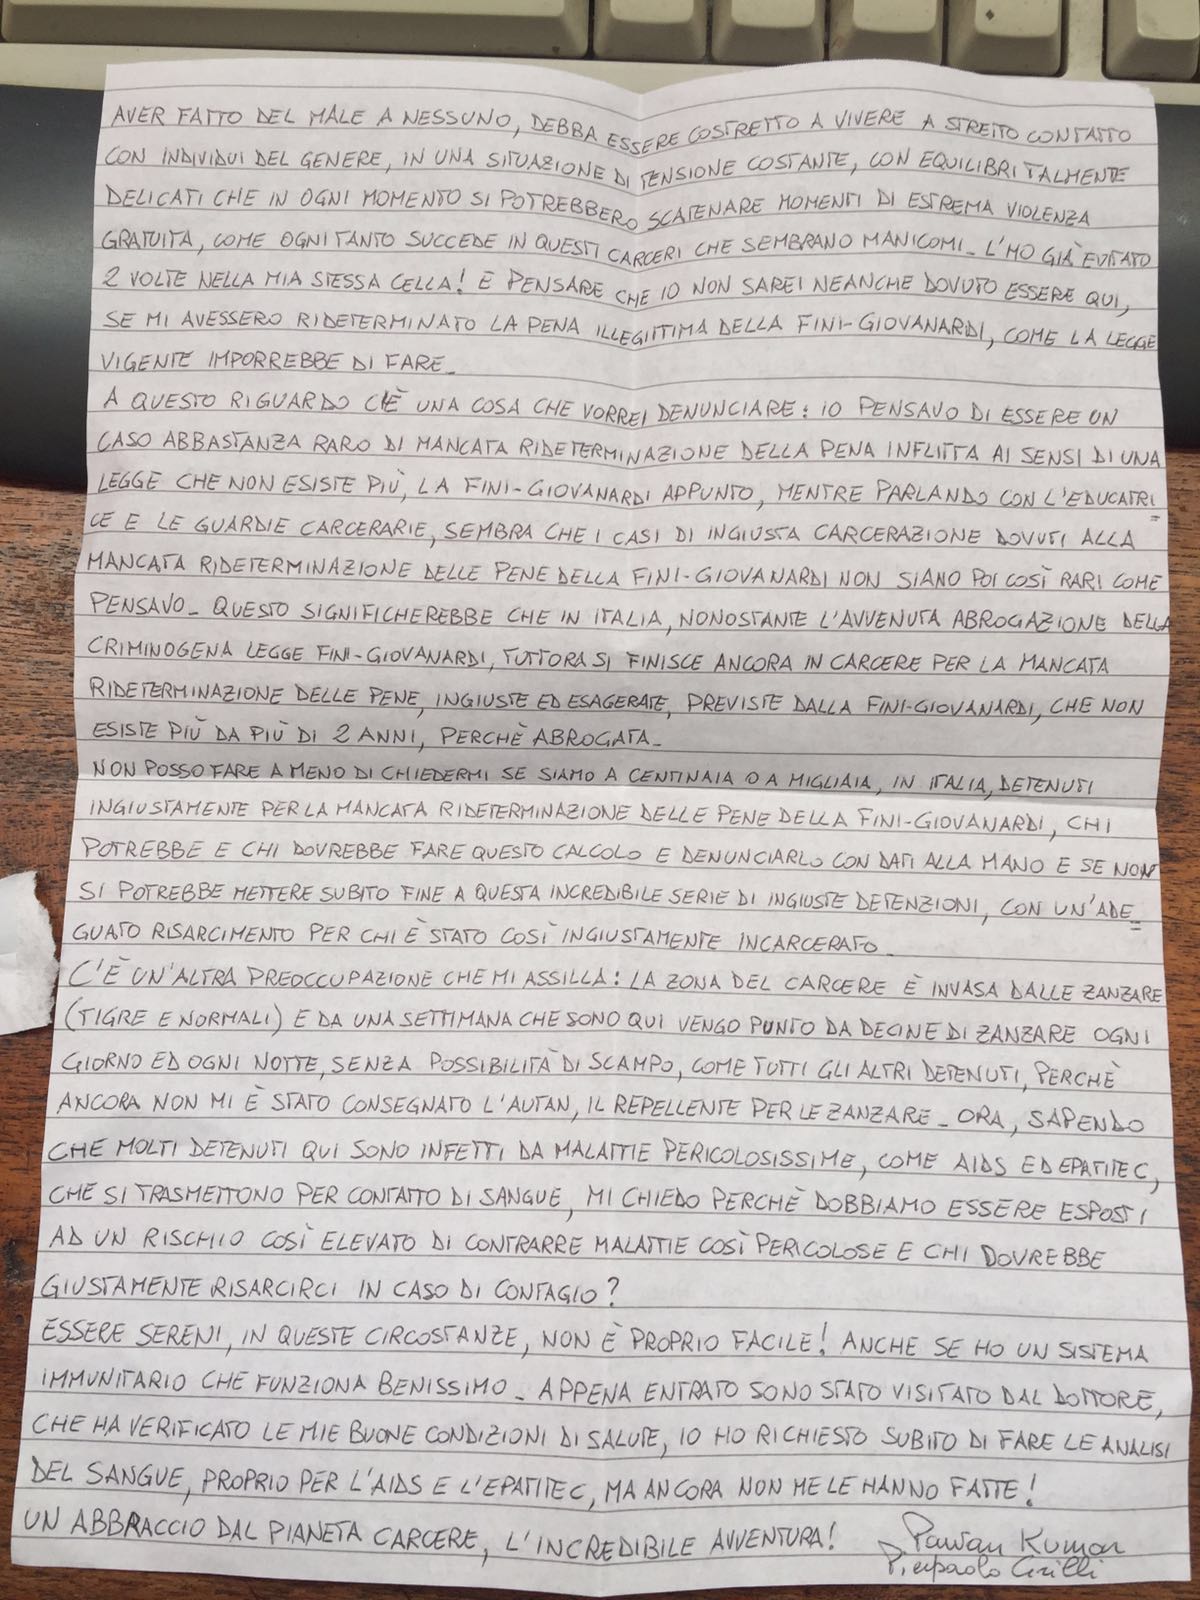 AVER FATTO DEL MALE A NESSUNO, DEBBA ESSERE COSTRETTO A VIVERE A STRETTO CONTATTO
CON INDIVIDUI DEL GENERE, IN UNA SITUAZIONE DI TENSIONE COSTANTE, CON EQUILIBRI TALMENTE
DELICATI CHE IN OGNI MOMENTO SI POTREBBERO SCATENARE MOMENTI DI ESTREMA VIOLENZA
GRATUITA, COME OGNI TANTO SUCCEDE IN QUESTI CARCERI CHE SEMBRANO MANICOMI_ L'HO GIÀ EVITATO
2 VOLTE NELLA MIA STESSA CELLA! E PENSARE CHE IO NON SAREI NEANCHE DOVUTO ESSERE QUI,
SE MI AVESSERO RIDETERMINATO LA PENA ILLEGITTIMA DELLA FINI-GIOVANARDI, COME LA LEGGE
VIGENTE IMPORREBBE DI FARE_
A QUESTO RIGUARDO C'È UNA COSA CHE VORREI DENUNCIARE: IO PENSAVO DI ESSERE UN
CASO ABBASTANZA RARO DI MANCATA RIDETERMINAZIONE DELLA PENA INFLITTA AI SENSI DI UNA
LEGGE CHE NON ESISTE PIÙ, LA FINI-GIOVANARDI APPUNTO, MENTRE PARLANDO CON L'EDUCATRI=
CE E LE GUARDIE CARCERARIE, SEMBRA CHE I CASI DI INGIUSTA CARCERAZIONE DOVUTI ALLA
MANCATA RIDETERMINAZIONE DELLE PENE DELLA FINI-GIOVANARDI NON SIANO POI COSÌ RARI COME
PENSAVO_ QUESTO SIGNIFICHEREBBE CHE IN ITALIA, NONOSTANTE L'AVVENUTA ABROGAZIONE DELLA
CRIMINOGENA LEGGE FINI-GIOVANARDI, TUTTORA SI FINISCE ANCORA IN CARCERE PER LA MANCATA
RIDETERMINAZIONE DELLE PENE, INGIUSTE ED ESAGERATE, PREVISTE DALLA FINI-GIOVANARDI, CHE NON
ESISTE PIÙ DA PIÙ DI 2 ANNI, PERCHÈ ABROGATA_
NON POSSO FARE A MENO DI CHIEDERMI SE SIAMO A CENTINAIA O A MIGLIAIA, IN ITALIA, DETENUTI
INGIUSTAMENTE PER LA MANCATA RIDETERMINAZIONE DELLE PENE DELLA FINI-GIOVANARDI, CHI
POTREBBE E CHI DOVREBBE FARE QUESTO CALCOLO E DENUNCIARLO CON DATI ALLA MANO E SE NON
SI POTREBBE METTERE SUBITO FINE A QUESTA INCREDIBILE SERIE DI INGIUSTE DETENZIONI, CON UN'ADE=
GUATO RISARCIMENTO PER CHI È STATO COSÌ INGIUSTAMENTE INCARCERATO_
C'È UN'ALTRA PREOCCUPAZIONE CHE MI ASSILLA: LA ZONA DEL CARCERE È INVASA DALLE ZANZARE
(TIGRE E NORMALI) E DA UNA SETTIMANA CHE SONO QUI VENGO PUNTO DA DECINE DI ZANZARE OGNI
GIORNO ED OGNI NOTTE, SENZA POSSIBILITÀ DI SCAMPO, COME TUTTI GLI ALTRI DETENUTI, PERCHÈ
ANCORA NON MI È STATO CONSEGNATO L'AUTAN, IL REPELLENTE PER LE ZANZARE_ ORA, SAPENDO
CHE MOLTI DETENUTI QUI SONO INFETTI DA MALATTIE PERICOLOSISSIME, COME AIDS ED EPATITE C,
CHE SI TRASMETTONO PER CONTATTO DI SANGUE, MI CHIEDO PERCHÈ DOBBIAMO ESSERE ESPOSTI
AD UN RISCHIO COSÌ ELEVATO DI CONTRARRE MALATTIE COSÌ PERICOLOSE E CHI DOVREBBE
GIUSTAMENTE RISARCIRCI IN CASO DI CONTAGIO?
ESSERE SERENI, IN QUESTE CIRCOSTANZE, NON È PROPRIO FACILE! ANCHE SE HO UN SISTEMA
IMMUNITARIO CHE FUNZIONA BENISSIMO_ APPENA ENTRATO SONO STATO VISITATO DAL DOTTORE,
CHE HA VERIFICATO LE MIE BUONE CONDIZIONI DI SALUTE, IO HO RICHIESTO SUBITO DI FARE LE ANALISI
DEL SANGUE, PROPRIO PER L'AIDS E L'EPATITE C, MA ANCORA NON ME LE HANNO FATTE!
UN ABBRACCIO DAL PIANETA CARCERE, L'INCREDIBILE AVVENTURA! Pawan Kumar
Pierpaolo Grilli